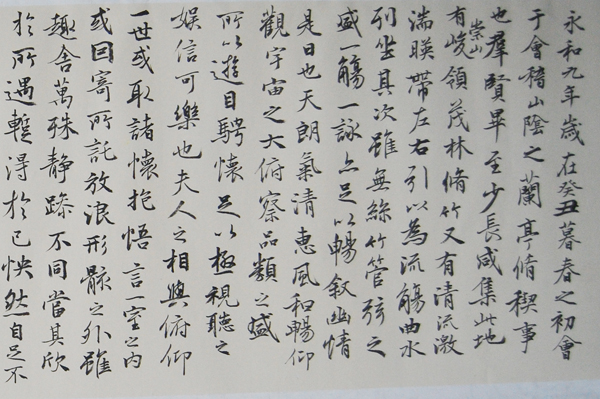 永和九年歲在癸丑暮春之初會
于會稽山陰之蘭亭脩稧事
也羣賢畢至少長咸集此地
有崇山峻領茂林脩竹又有清流激
湍暎帶左右引以為流觴曲水
列坐其次雖無絲竹管弦之
盛一觴一詠亦足以暢敘幽情
是日也天朗氣清惠風和暢仰
觀宇宙之大俯察品類之盛
所以遊目騁懷足以極視聽之
娛信可樂也夫人之相與俯仰
一世或取諸懷抱悟言一室之內
或因寄所託放浪形骸之外雖
趣舍萬殊静躁不同當其欣
於所遇蹔得於己怏然自足不